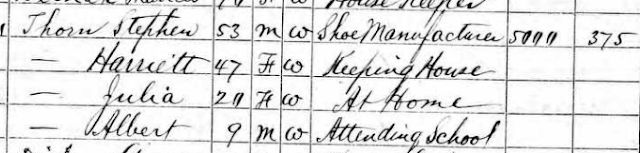 House Keeper
1 Thorn Stephen 53 M W Shoe Manufacturer 5000 375
— Harriett 47 F W Keeping House
— Julia 20 F W At Home
— Albert 9 M W Attending School